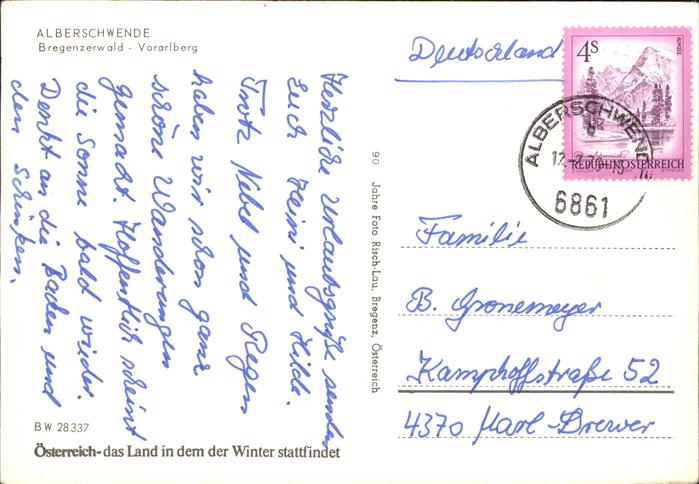 ALBERSCHWENDE
Bregenzerwald - Vorarlberg
Herzliche Urlaubsgrüße senden
Euch Heini und Hilde.
Trotz Nebel und Regen
haben wir schon ganz
schöne Wanderungen
gemacht. Hoffentlich scheint
die Sonne bald wieder.
Denkt an die Baden und
den Schinken.
BW 28337
Österreich-das Land in dem der Winter stattfindet
90 Jahre Foto Risch-Lau, Bregenz, Österreich
Deutschland
4S
ALMSEE
REPUBLIK ÖSTERREICH
ALBERSCHWENDE
6861
Familie
B. Gronemeyer
Kamphoffstraße 52
4370 Marl-Brewer